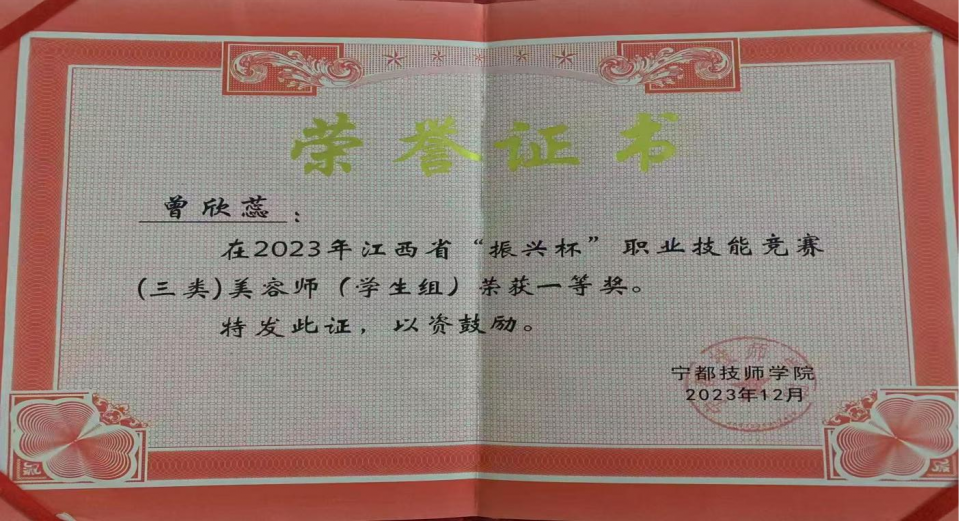 荣誉证书
曾欣蕊：
在2023年江西省“振兴杯”职业技能竞赛
(三类)美容师（学生组）荣获一等奖。
特发此证，以资鼓励。
宁都技师学院
2023年12月